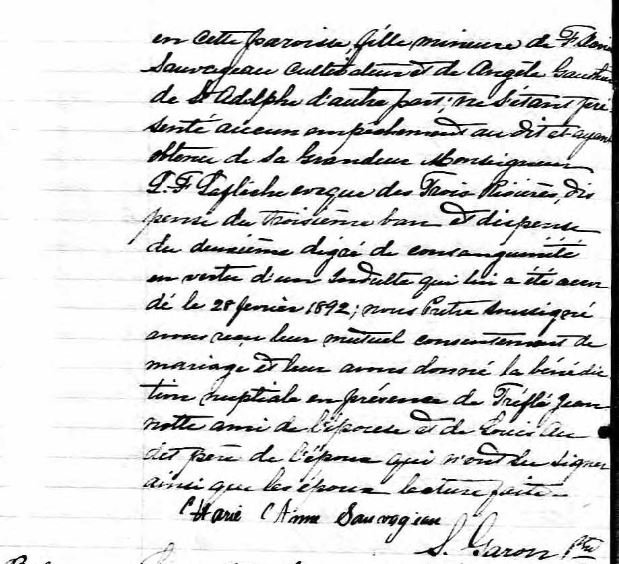 en cette paroisse, fille mineure de F.
Sauvageau cultivateur et de Angèle Gauthier
de St Adelphe d'autre part; ne s'étant pré-
senté aucun empêchement au dit et ayant
obtenu de Sa Grandeur Monseigneur
L. F. Laflèche evêque des Trois Rivières, dis
pense du troisième ban et dispense
du deuxième degré de consanguinité
en vertu d'un Indulte qui lui a été accor
dé le 28 fevrier 1892; nous Prêtre soussigné
avons reçu leur mutuel consentement de
mariage et leur avons donné la bénédic
tion nuptiale en présence de Tréflé Jean
notte ami de l'épouse et de Louis Au
det père de l'époux qui n'ont su signer
ainsi que les époux lecture faite
Marie Anne Sauvageau
S. Garon ptre